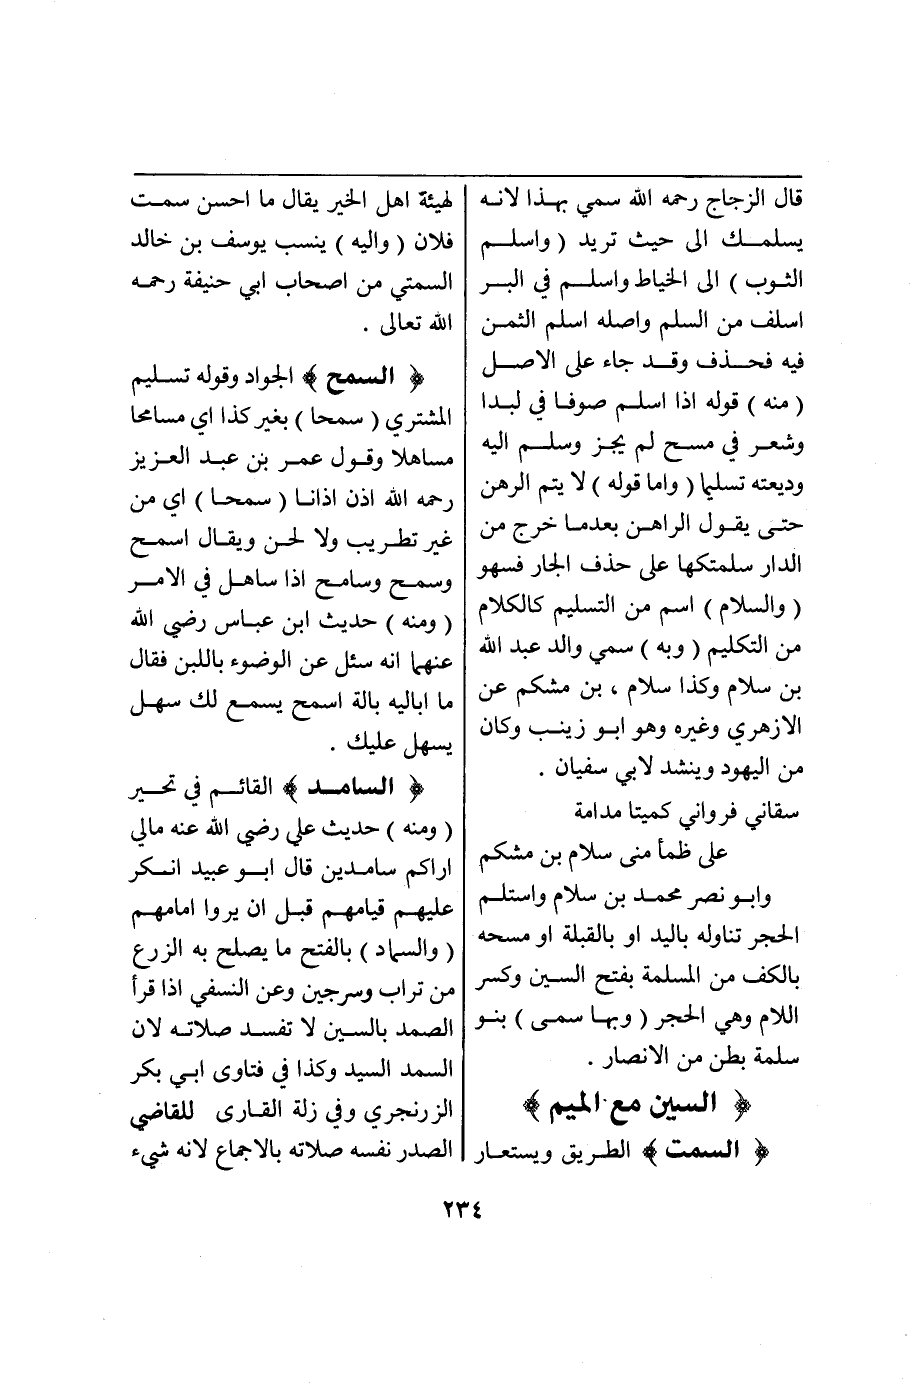 قال الزجاج رحمه الله سمي بهذا لانه
يسلمك الى حيث تريد ( واسلم
الثوب ) الى الخياط واسلم في البر
اسلف من السلم واصله اسلم الثمن
فيه فحذف وقد جاء على الاصل
( منه ) قوله اذا اسلم صوفا في لبدا
وشعر في مسح لم يجز وسلم اليه
وديعته تسليما ( واما قوله ) لا يتم الرهن
حتى يقول الراهن بعدما خرج من
الدار سلمتكها على حذف الجار فسهو
( والسلام ) اسم من التسليم كالكلام
من التكليم ( وبه ) سمي والد عبد الله
بن سلام وكذا سلام ، بن مشكم عن
الازهري وغيره وهو ابو زينب وكان
من اليهود وينشد لابي سفيان .
سقاني فرواني كميتا مدامة
على ظمأ منى سلام بن مشكم
وابو نصر محمد بن سلام واستلم
الحجر تناوله باليد او بالقبلة او مسحه
بالكف من المسلمة بفتح السين وكسر
اللام وهي الحجر ( وبها سمى ) بنو
سلمة بطن من الانصار .
﴿ السين مع الميم ﴾
﴿ السمت ﴾ الطريق ويستعار
لهيئة اهل الخير يقال ما احسن سمت
فلان ( واليه ) ينسب يوسف بن خالد
السمتي من اصحاب ابي حنيفة رحمه
الله تعالى .
﴿ السمح ﴾ الجواد وقوله تسليم
المشتري ( سمحا ) بغير كذا اي مسامحا
مساهلا وقول عمر بن عبد العزيز
رحمه الله اذن اذانا ( سمحا ) اي من
غير تطريب ولا لحن ويقال اسمح
وسمح وسامح اذا ساهل في الامر
( ومنه ) حديث ابن عباس رضي الله
عنهما انه سئل عن الوضوء باللبن فقال
ما اباليه بالة اسمح يسمع لك سهل
يسهل عليك .
﴿ السامد ﴾ القائم في تحير
( ومنه ) حديث علي رضي الله عنه مالي
اراكم سامدين قال ابو عبيد انكر
عليهم قيامهم قبل ان يروا امامهم
( والسماد ) بالفتح ما يصلح به الزرع
من تراب وسرجين وعن النسفي اذا قرأ
الصمد بالسين لا تفسد صلاته لان
السمد السيد وكذا في فتاوى ابي بكر
الزرنجري وفي زلة القارى للقاضي
الصدر نفسه صلاته بالاجماع لانه شيء
٢٣٤